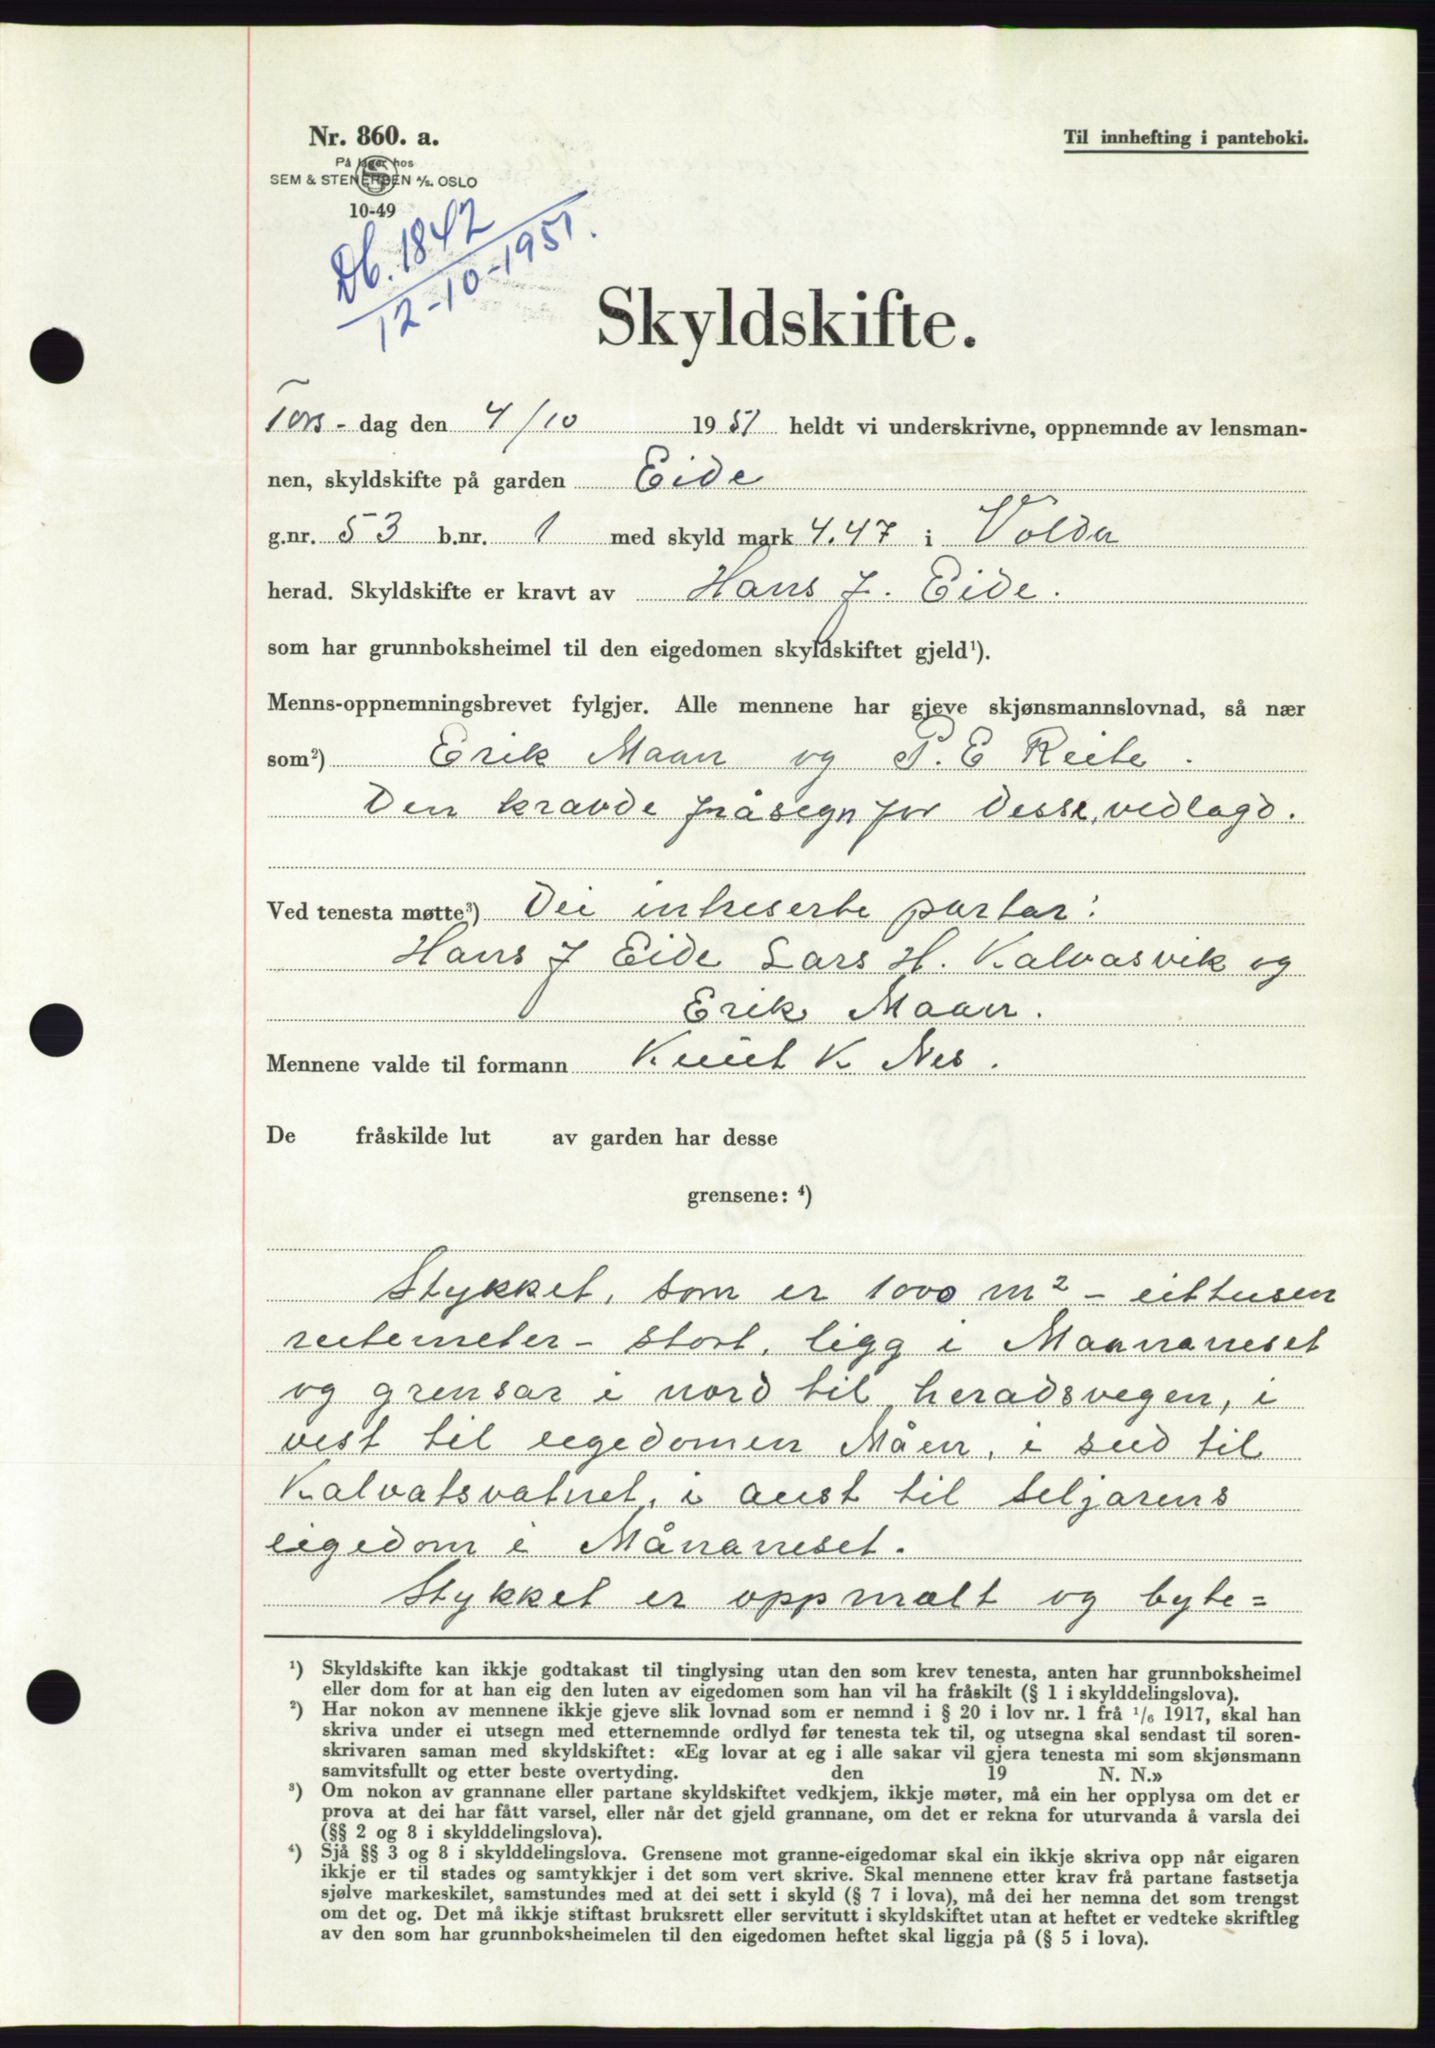 Nr. 860. a.
Til innhefting i panteboki.
På lager hos
SEM & STENERSEN A/S. OSLO
10-49
Db. 1842
12-10-1951.
Skyldskifte.
Tors- dag den 4/10 1951 heldt vi underskrivne, oppnemnde av lensman-
nen, skyldskifte på garden Eide
g.nr. 53 b.nr. 1 med skyld mark 4.47 i Volda
herad. Skyldskifte er kravt av Hans J. Eide.
som har grunnboksheimel til den eigedomen skyldskiftet gjeld¹).
Menns-oppnemningsbrevet fylgjer. Alle mennene har gjeve skjønsmannslovnad, så nær
som²) Erik Maan og P. E Reite.
Den kravde fråsegn for desse, vedlagd.
Ved tenesta møtte³) Dei intreserte partar:
Hans J Eide Lars H. Kalvasvik og
Erik Maan.
Mennene valde til formann Knut K Nes.
De fråskilde lut av garden har desse
grensene: ⁴)
Stykket, som er 1000 m² - eittusen
rutemeter - stort, ligg i Maananeset
og grensar i nord til heradsvegen, i
vest til eigedomen Måen, i sud til
Kalvatsvatnet, i aust til seljarens
eigedom i Månaneset.
Stykket er oppmalt og byte=
¹) Skyldskifte kan ikkje godtakast til tinglysing utan den som krev tenesta, anten har grunnboksheimel
eller dom for at han eig den luten av eigedomen som han vil ha fråskilt (§ 1 i skylddelingslova).
²) Har nokon av mennene ikkje gjeve slik lovnad som er nemnd i § 20 i lov nr. 1 frå ¹/₆ 1917, skal han
skriva under ei utsegn med etternemnde ordlyd før tenesta tek til, og utsegna skal sendast til soren-
skrivaren saman med skyldskiftet: «Eg lovar at eg i alle sakar vil gjera tenesta mi som skjønsmann
samvitsfullt og etter beste overtyding. den 19 N. N.»
³) Om nokon av grannane eller partane skyldskiftet vedkjem, ikkje møter, må ein her opplysa om det er
prova at dei har fått varsel, eller når det gjeld grannane, om det er rekna for uturvanda å varsla dei
(§§ 2 og 8 i skylddelingslova).
⁴) Sjå §§ 3 og 8 i skylddelingslova. Grensene mot granne-eigedomar skal ein ikkje skriva opp når eigaren
ikkje er til stades og samtykkjer i det som vert skrive. Skal mennene etter krav frå partane fastsetja
sjølve markeskilet, samstundes med at dei sett i skyld (§ 7 i lova), må dei her nemna det som trengst
om det og. Det må ikkje stiftast bruksrett eller servitutt i skyldskiftet utan at heftet er vedteke skriftleg
av den som har grunnboksheimelen til den eigedomen heftet skal liggja på (§ 5 i lova).